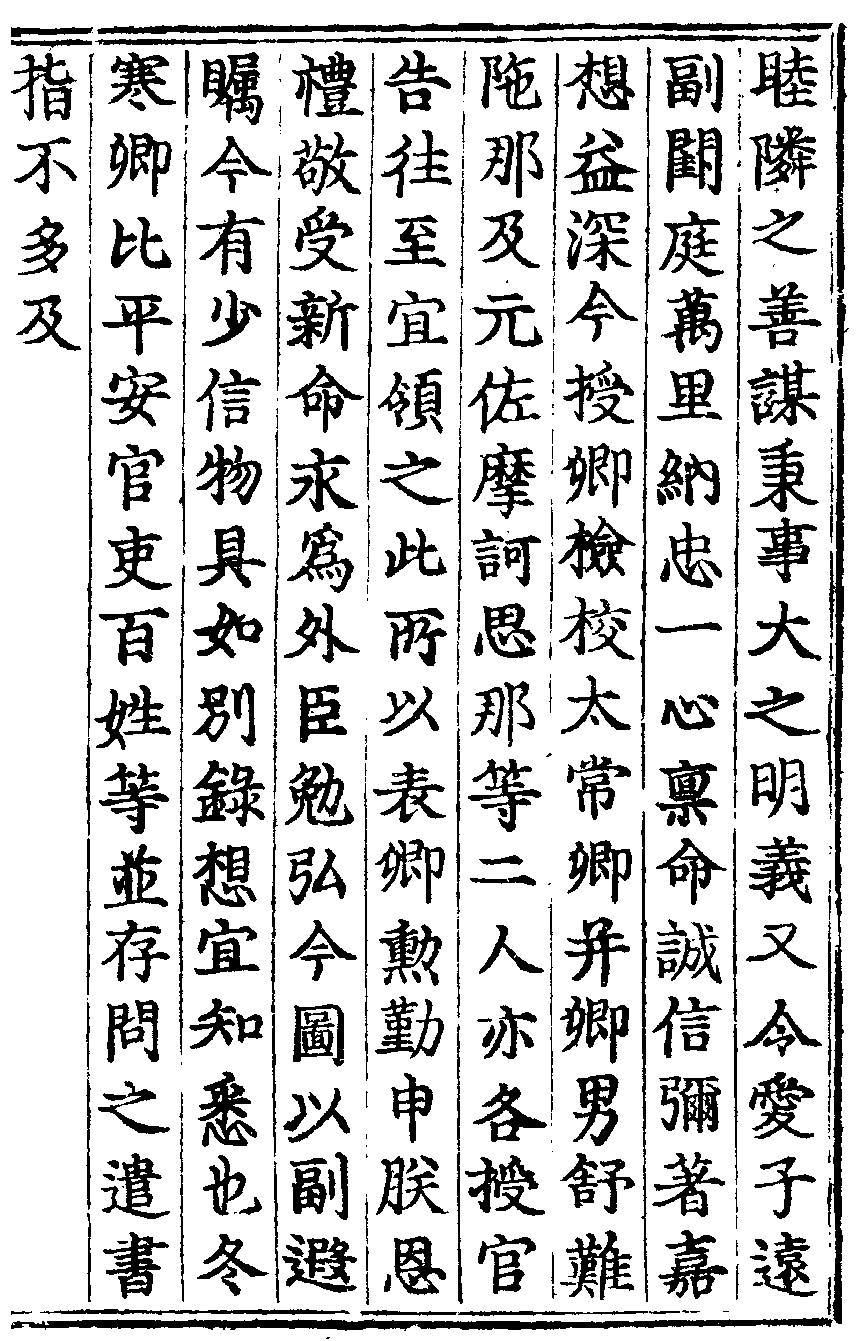 睦隣之善謀秉事大之明義又令愛子遠
副闕庭萬里納忠一心禀命誠信彌著嘉
想益深今授卿檢校太常卿并卿男舒難
陁那及元佐摩訶思那等二人亦各授官
告往至宜領之此所以表卿勲勤申朕恩
禮敬受新命永爲外臣勉弘令圖以副遐
矚今有少信物具如別錄想宜知悉也冬
寒卿比平安官吏百姓等並存問之遣書
指不多及